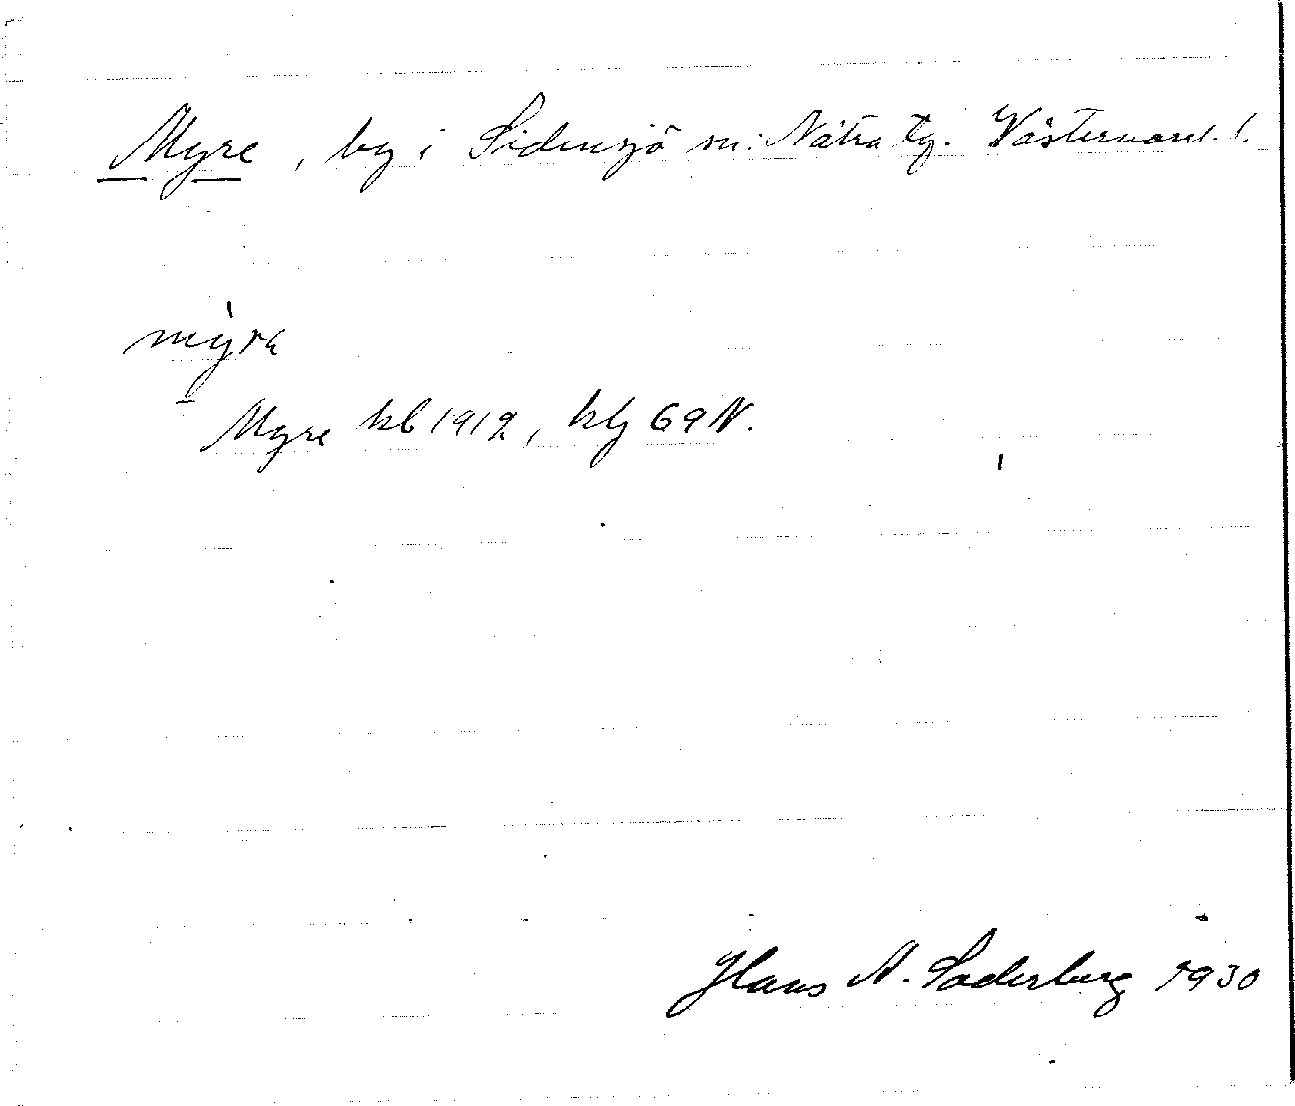 Myre, by i Sidensjö sn. Nätra tg. Västernorrl. l.
mýra
Myre kb 1912, hlj 69 N.
Hans A. Söderberg 1930